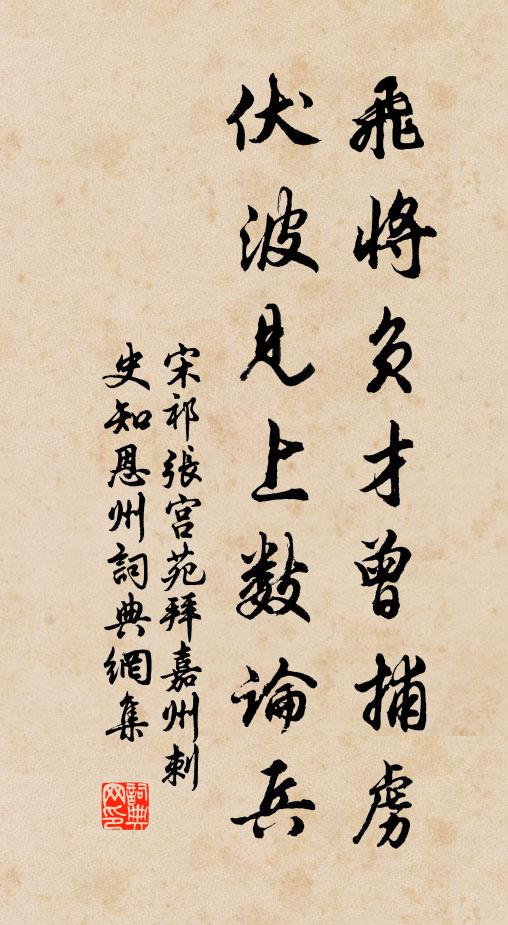 飛將負才曾捕虜
伏波見上數論兵
宋祁張宮苑拜嘉州刺
史知恩州詞典網集
詞典網印